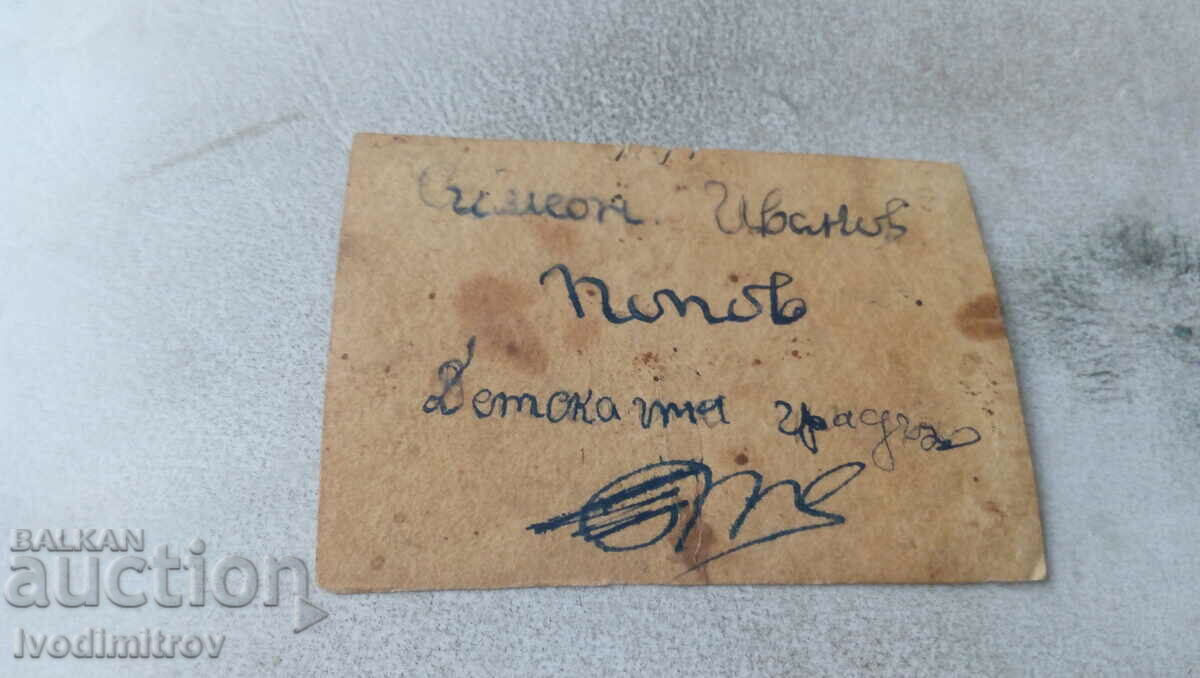 Симеон Иванов
Попов
Детската града
BALKAN
auction
Ivodimitrov